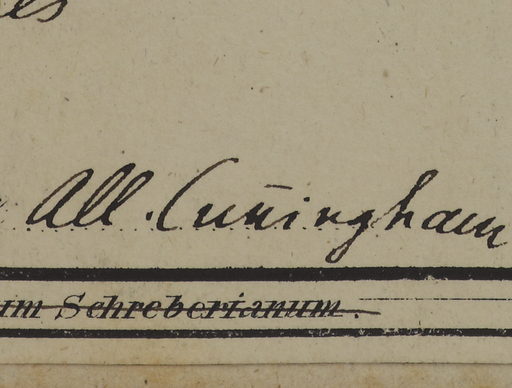 es
All. Cun̄ingham
um Schreberianum.